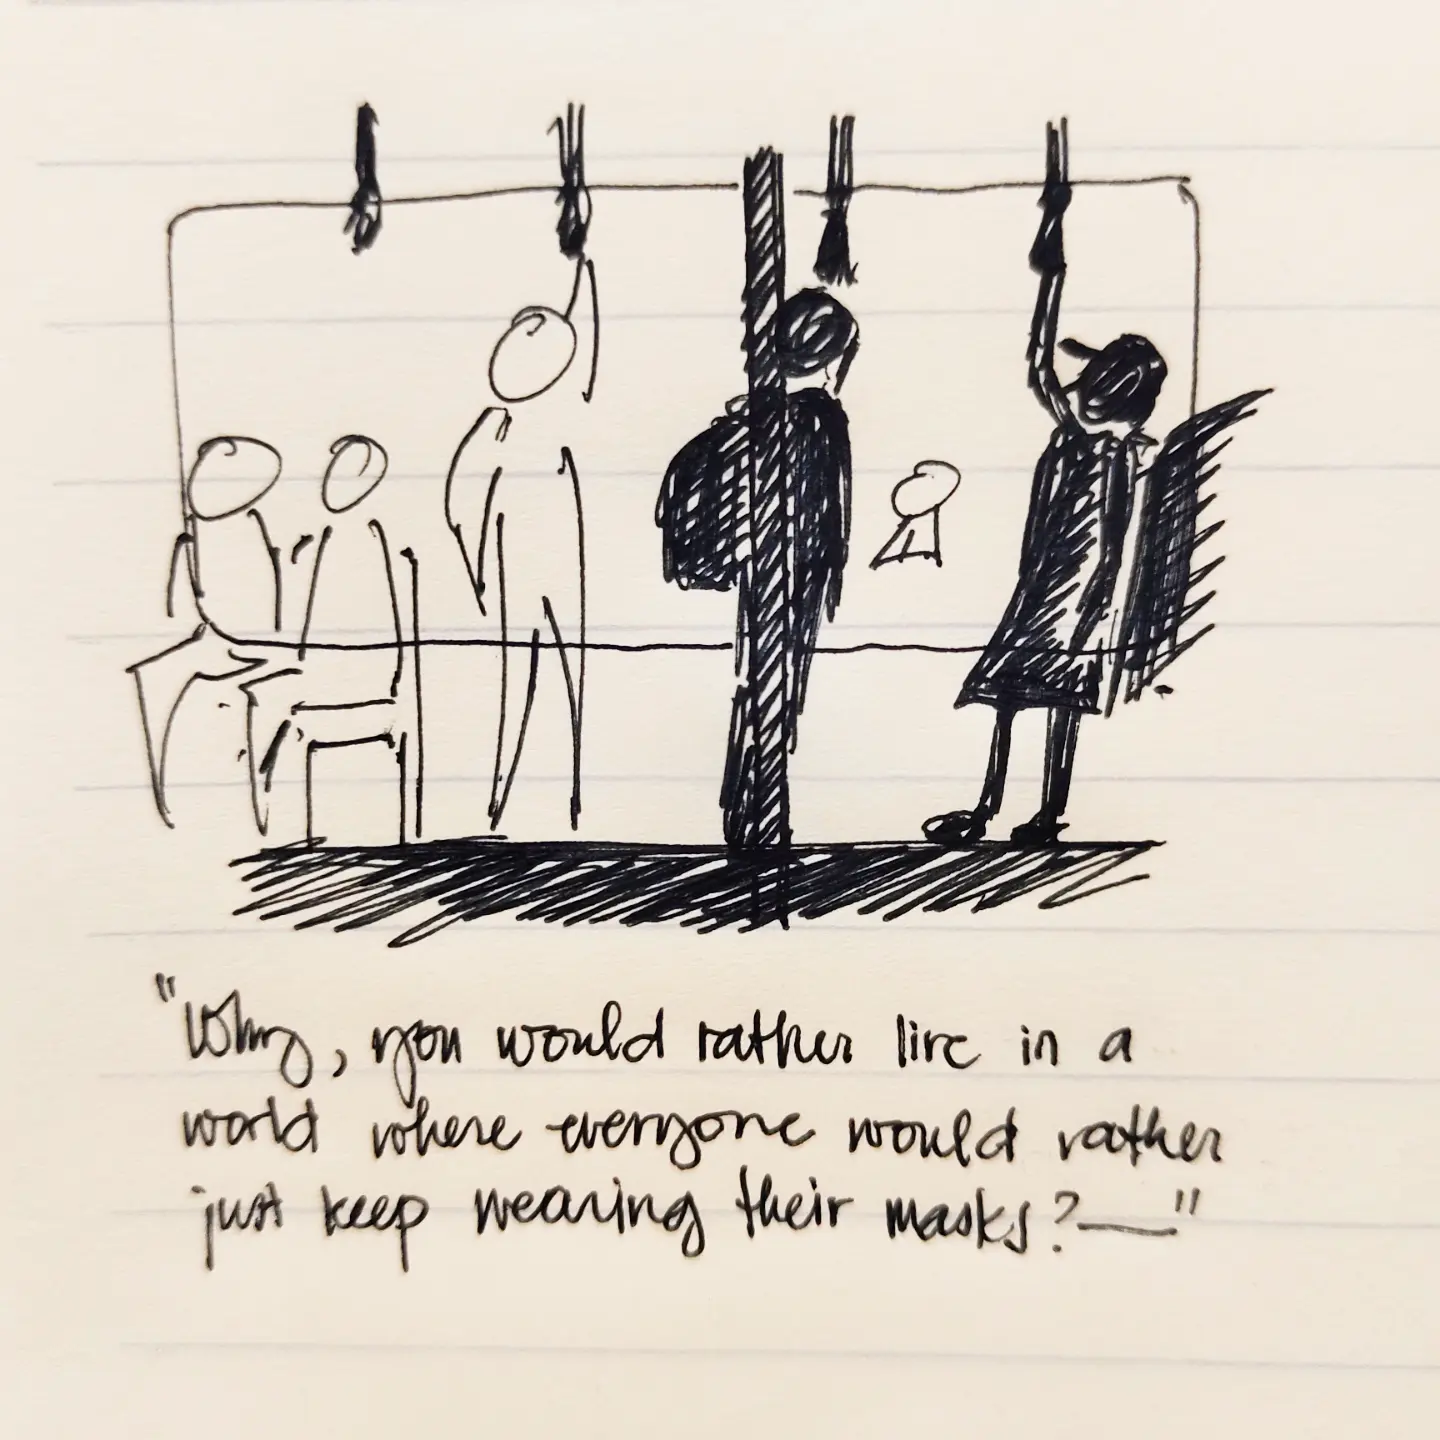 "Why, you would rather live in a
world where everyone would rather
just keep wearing their masks?—"